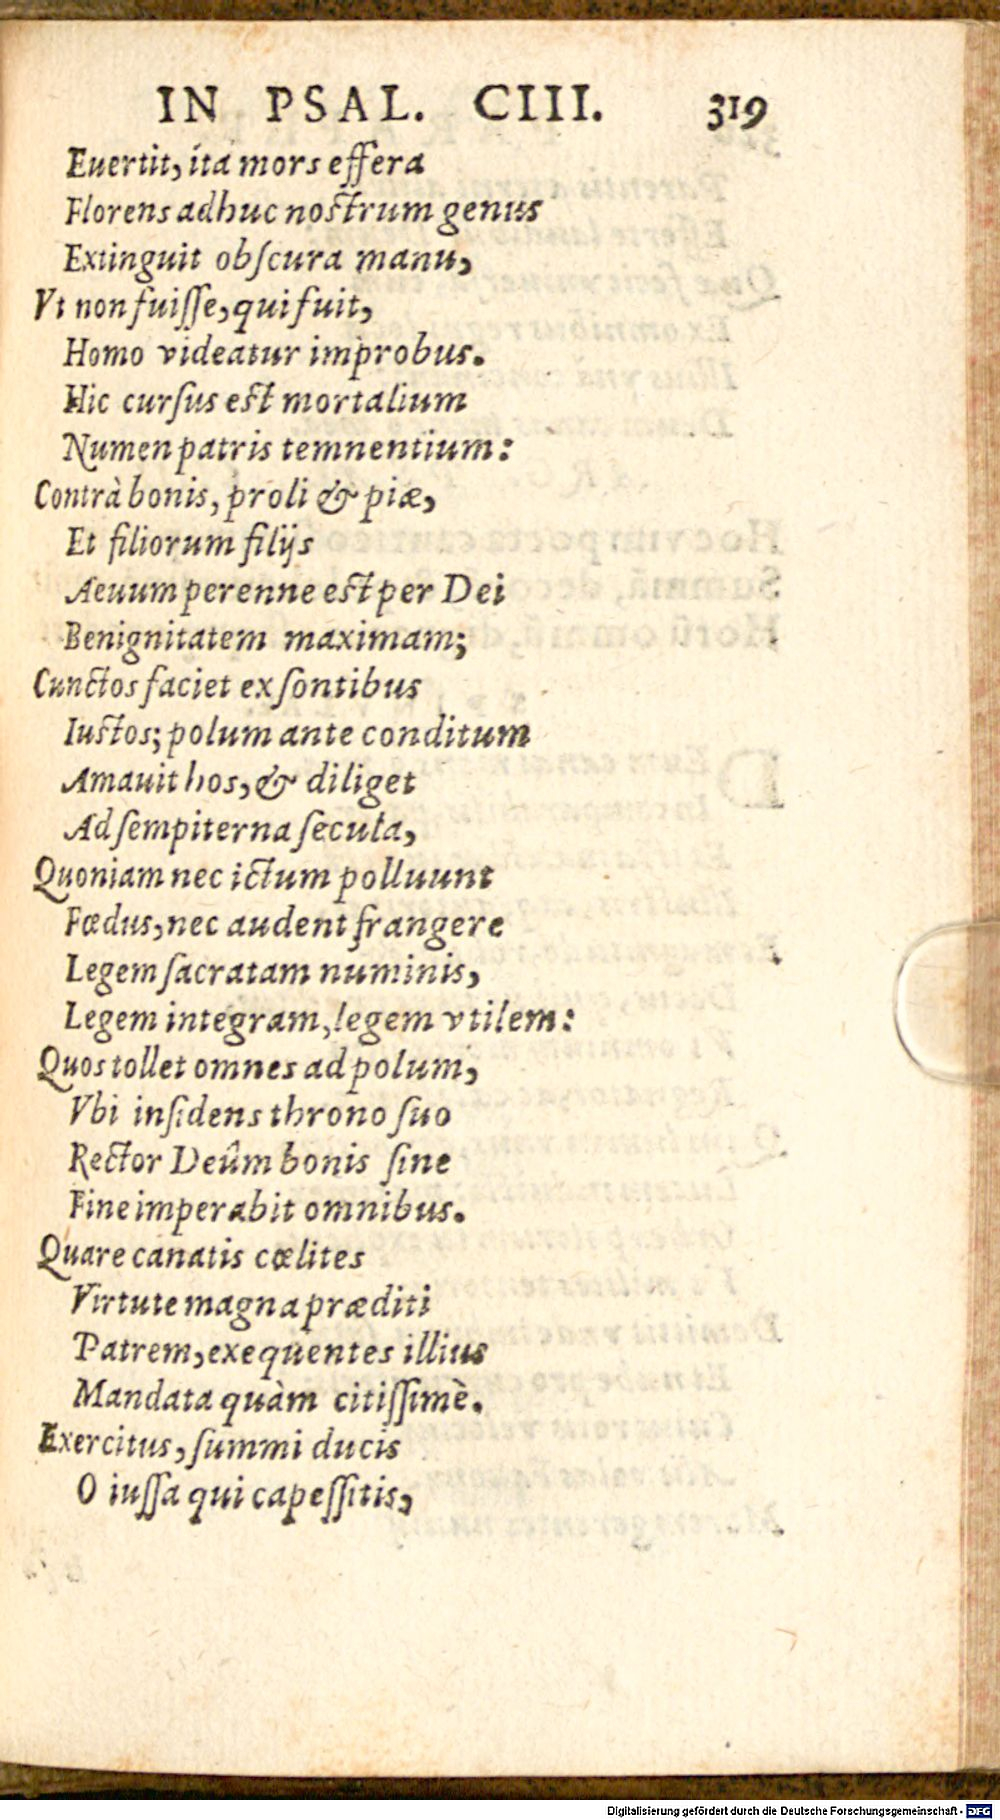 IN PSAL. CIII. 319
Euertit, ita mors effera
Florens adhuc nostrum genus
Extinguit obſcura manu,
Vt non fuiſſe, qui fuit,
Homo videatur improbus.
Hic curſus est mortalium
Numen patris temnentium:
Contrà bonis, proli & piæ,
Et filiorum filijs
Aeuum perenne est per Dei
Benignitatem maximam;
Cunctos faciet ex ſontibus
Iustos; polum ante conditum
Amauit hos, & diliget
Ad ſempiterna ſecula,
Quoniam nec ictum polluunt
Fœdus, nec audent frangere
Legem ſacratam numinis,
Legem integram, legem vtilem:
Quos tollet omnes ad polum,
Vbi inſidens throno ſuo
Rector Deûm bonis ſine
Fine imperabit omnibus.
Quare canatis cœlites
Virtute magna præditi
Patrem, exequentes illius
Mandata quàm citiſſimè.
Exercitus, ſummi ducis
O iuſſa qui capeſſitis,
Digitalisierung gefördert durch die Deutsche Forschungsgemeinschaft - DFG